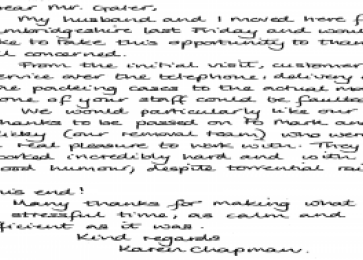 ear Mr. Gater,
My husband and I moved here f
mbridgeshire last Friday and woul
ke to take this opportunity to than
ll concerned.
From the initial visit, customer
ervice over the telephone, delivery
he packing cases to the actual mo
one of your staff could be faulte
We would particularly like our
hanks to be passed on to Mark an
icky (our removal team) who wer
real pleasure to work with. They
orked incredibly hard and with
ood humour, despite torrential rai
his end!
Many thanks for making what
stressful time, as calm and
fficient as it was.
Kind regards
Karen Chapman.